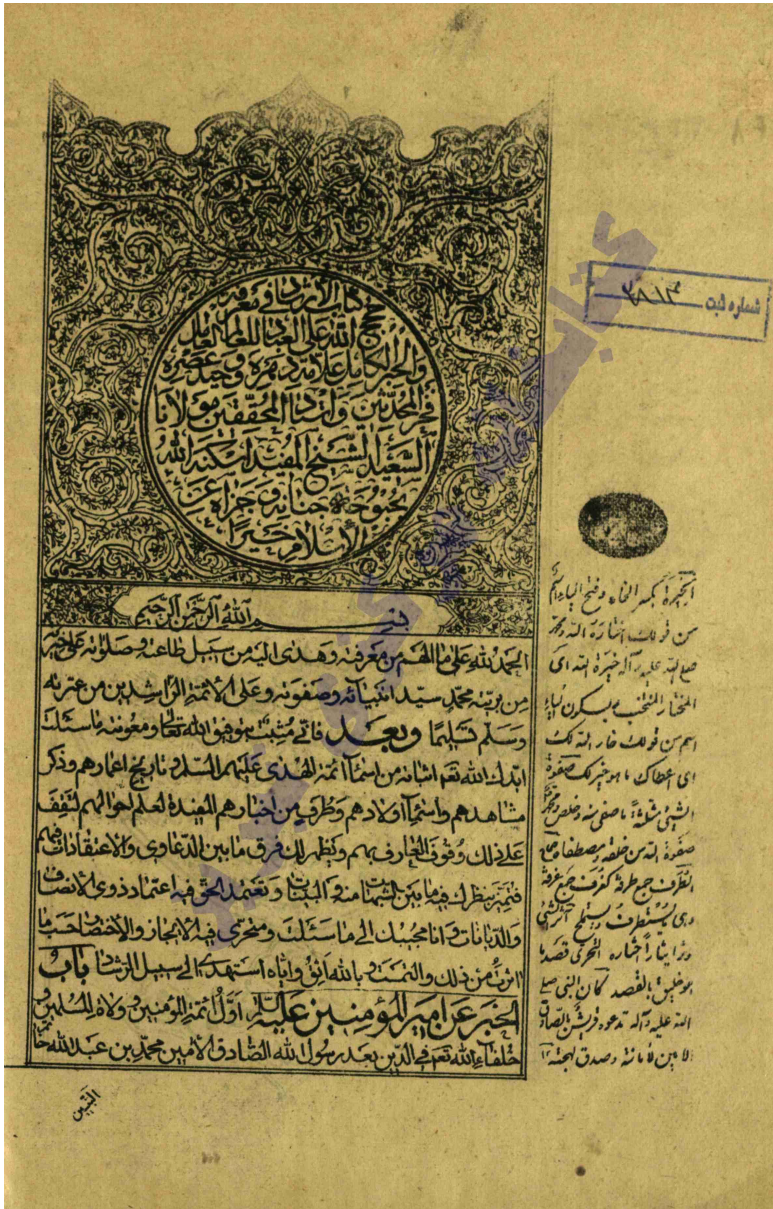 كتاب الإرشاد في معرفة
حجج الله على العباد للعالم العامل
والحبر الكامل علامة دهره وحيد عصره
فخر المحدثين وازدة المحققين مولانا
السعيد الشيخ المفيد اسكنه الله
بحبوحة جنانه وجزاه عن
الأسلام خيرا
شماره ثبت
بسم الله الرحمن الرحيم
الحمد لله على ما الهم من معرفته وهدى اليه من سبيل طاعته وصلواته على خيرته
من بريته محمد سيد انبيائه وصفوته وعلى الأئمة الراشدين من عترته
وسلم تسليما وبعد فاني مثبت بتوفيق الله تعالى ومعونته ما سئلت
ايدك الله تعم اثباته من اسماء ائمة الهدى عليهم السلم وتاريخ اعمارهم وذكر
مشاهدهم واسماء اولادهم وطرف من اخبارهم المفيدة لعلم احوالهم لتقف
على ذلك وقوف العارف بهم ويظهر لك فرق ما بين الدعاوى والاعتقادات فيهم
فتميز بنظرك فيه ما بين الشبهات منه والبينات وتعتمد الحق فيه اعتماد ذوى الأنصاف
والديانات وانا مجيبك الى ما سئلت ومتحرى فيه الأيجاز والأختصار حسب ما
اثرت من ذلك والتمست وبالله اثق واياه استهدى الى سبيل الرشاد باب
الخبر عن امير المؤمنين عليه السلام اول ائمة المؤمنين وولاة المسلمين و
خلفاء الله تعم فى الدين بعد رسول الله الصادق الأمين محمد بن عبد الله خاتم
النبيين
الخيرة بكسر الخاء وفتح الياء اسم
من قولك اختاره الله ومحمد
صلع الله عليه وآله خيرة الله اى
المختار المنتخب وبسكون الياء
اسم من قولك خار الله لك
اى اعطاك ما هو خير لك صفوة
الشئ مثلثة ما صفى منه وخلص ومحمد
صفوة الله من خلقه ومصطفاه
الطرف جمع طرفة كغرف جمع غرفة
وهى ما يستطرف ويستملح آثر الشئ
ايثارا اختاره التحرى قصد ما
هو خليق بالقصد كان النبى صلى
الله عليه وآله تدعوه قريش بالصادق
الامين لأمانته وصدق لهجته ١٢